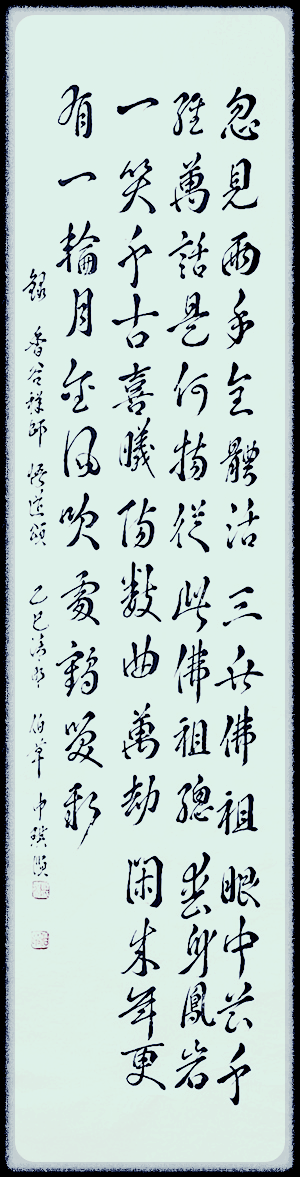 忽見兩手全體活三世佛祖眼中花千
經萬話是何物從此佛祖總喪身鳳岩
一笑千古喜曦陽數曲萬劫閑來年更
有一輪月金風吹處鶴唳新
錄 香谷禪師 悟道頌 乙巳清明